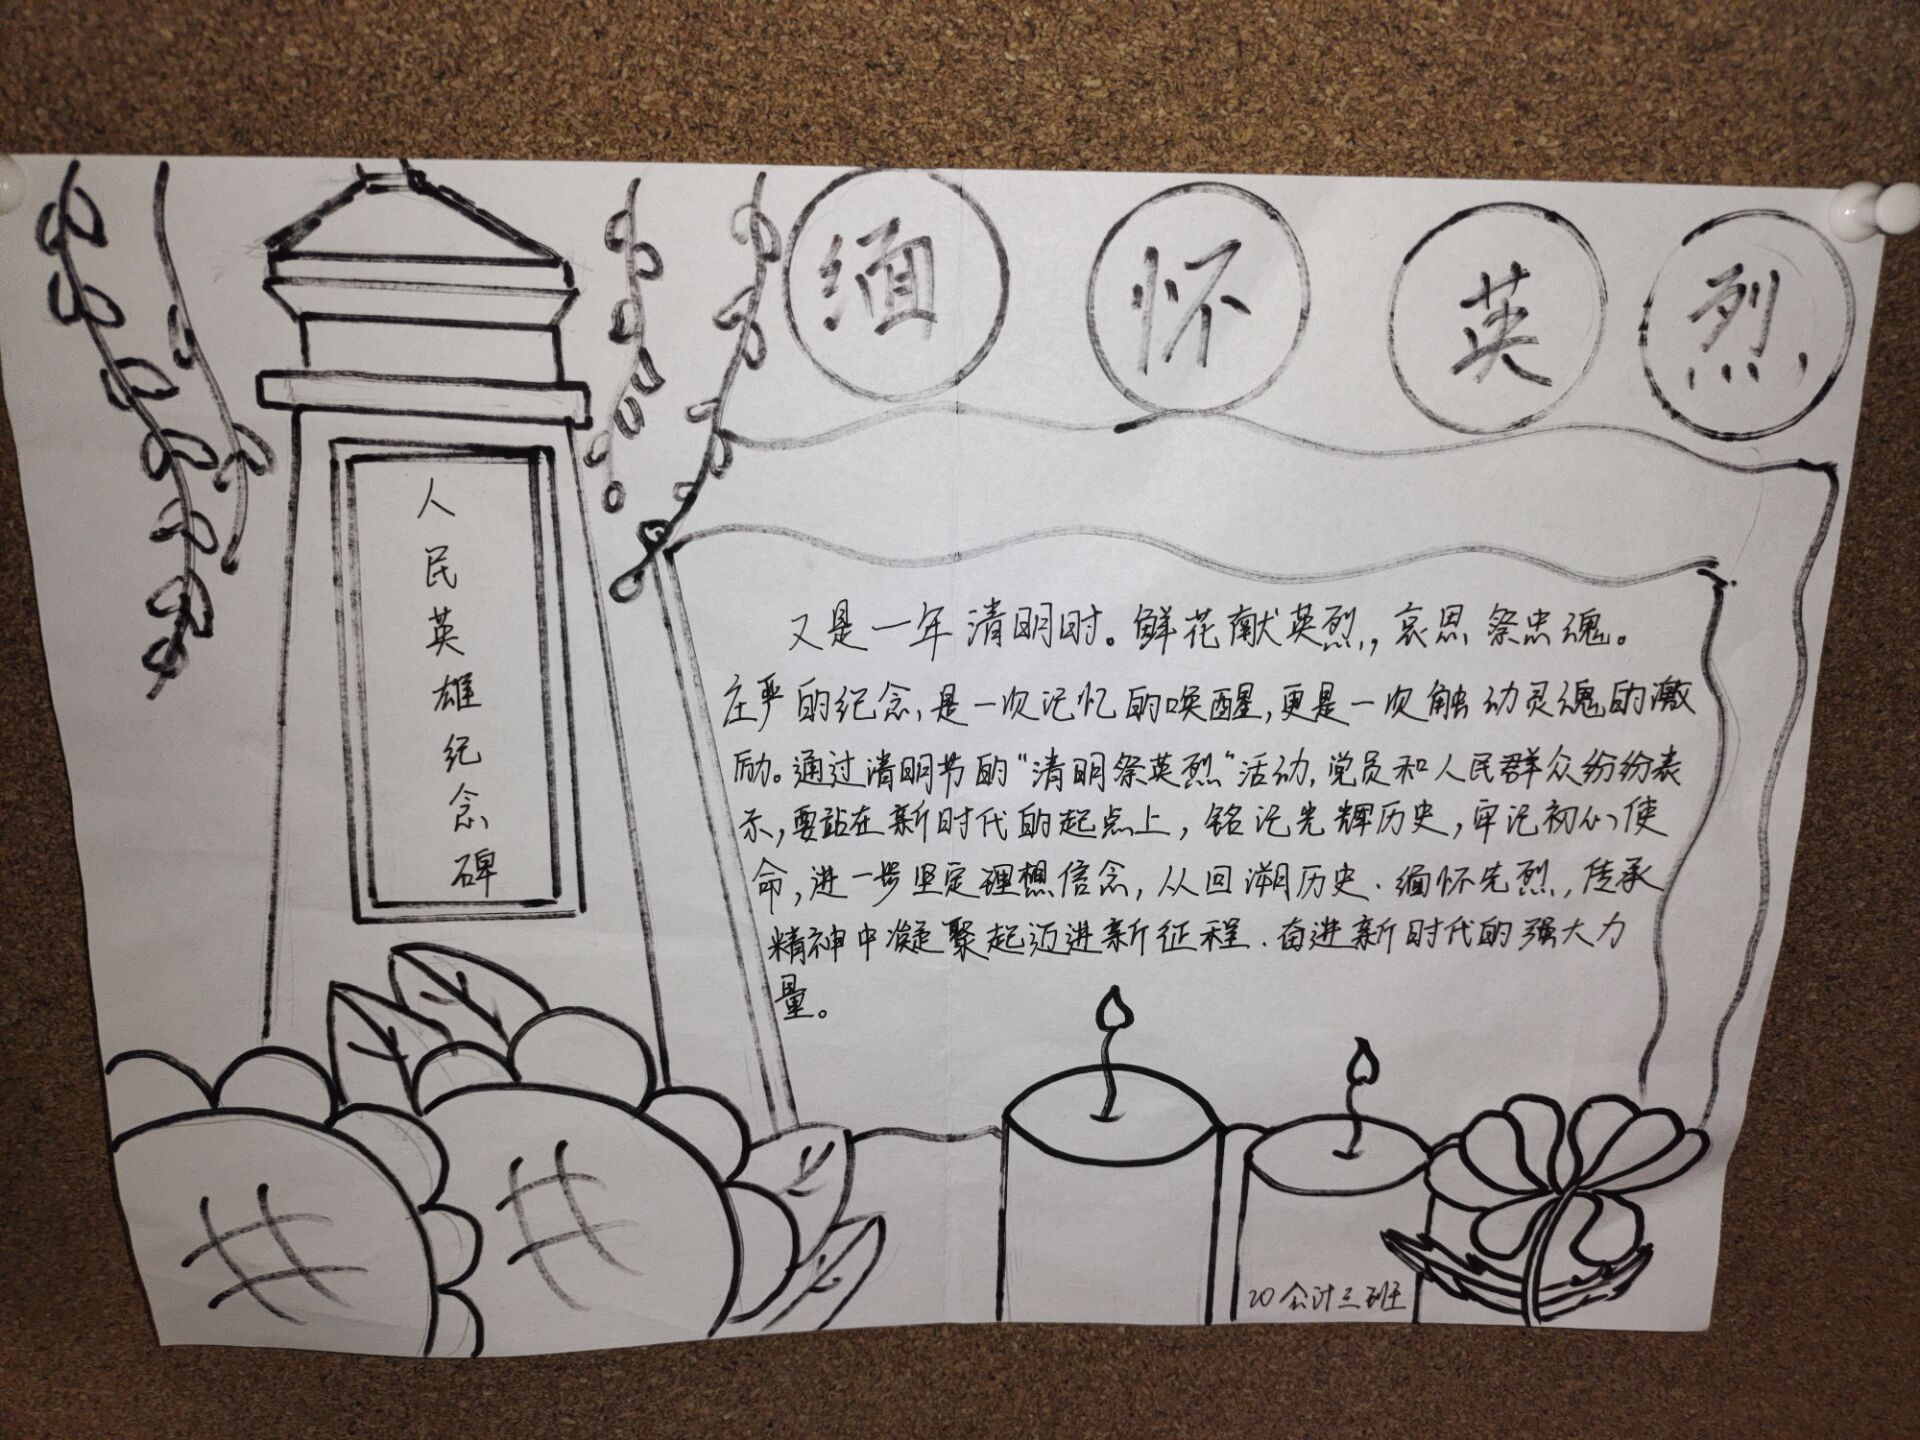 缅怀英烈
人民英雄纪念碑
又是一年清明时。鲜花献英烈,哀思祭忠魂。
庄严的纪念,是一次记忆的唤醒,更是一次触动灵魂的激
励。通过清明节的“清明祭英烈”活动,党员和人民群众纷纷表
示,要站在新时代的起点上,铭记光辉历史,牢记初心使
命,进一步坚定理想信念,从回溯历史、缅怀先烈,传承
精神中凝聚起迈进新征程、奋进新时代的强大力
量。
20会计三班